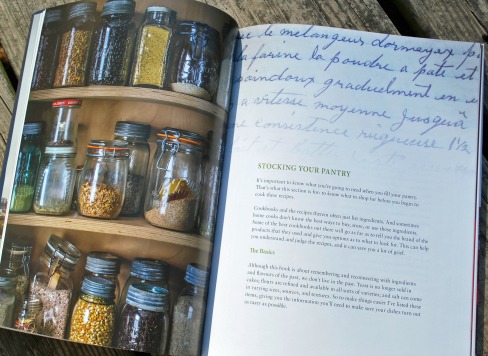 le melangeur dormeyer
la farine la poudre a pate et
graduellement en
a vitesse moyenne jusqu'à
consistence
STOCKING YOUR PANTRY
It's important to know what you're going to need when you fill your pantry.
That's what this section is for: to know what to shop for before you begin to
cook these recipes.
Cookbooks and the recipes therein often just list ingredients. And sometimes
home cooks don't know the best ways to buy, store, or use those ingredients.
Some of the best cookbooks out there will go as far as to tell you the brand of the
products that they used and give you options as to what to look for. This can help
you understand and judge the recipes, and it can save you a lot of grief.
The Basics
Although this book is about remembering and reconnecting with ingredients
and flavours of the past, we don't live in the past. Yeast is no longer sold in
cakes; flours are refined and available in all sorts of varieties; and salt can come
in varying sizes, sources, and textures. So to make things easier I've listed these
items, giving you the information you'll need to make sure your dishes turn out
as tasty as possible.